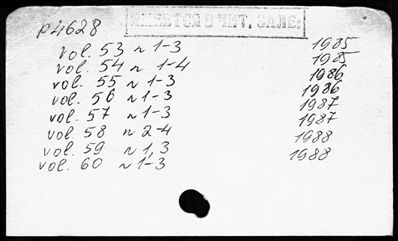 р4628
ИМЕЕТСЯ В ЧИТ. ЗАЛЕ:
vol. 53 n 1-3 1985
vol. 54 n 1-4 1985
vol. 55 n 1-3 1986
vol. 56 n 1-3 1986
vol. 57 n 1-3 1987
vol 58 n 2-4 1987
vol. 59 n 1, 3 1988
vol. 60 n 1-3 1988